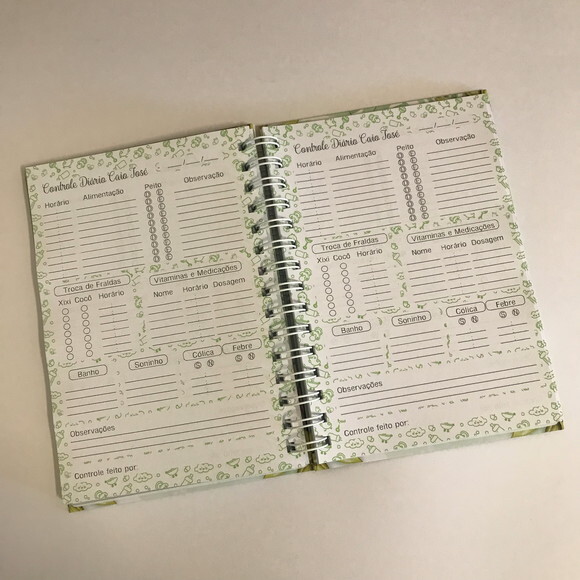 Controle Diário Caio José __/__/__
Horário Alimentação Peito Observação
Troca de Fraldas
Xixi Cocô Horário
Vitaminas e Medicações
Nome Horário Dosagem
Banho
Soninho
Cólica
S N
Febre
S N
Observações
Controle feito por:
Controle Diário Caio José __/__/__
Horário Alimentação Peito Observação
Troca de Fraldas
Xixi Cocô Horário
Vitaminas e Medicações
Nome Horário Dosagem
Banho
Soninho
Cólica
S N
Febre
S N
Observações
Controle feito por: